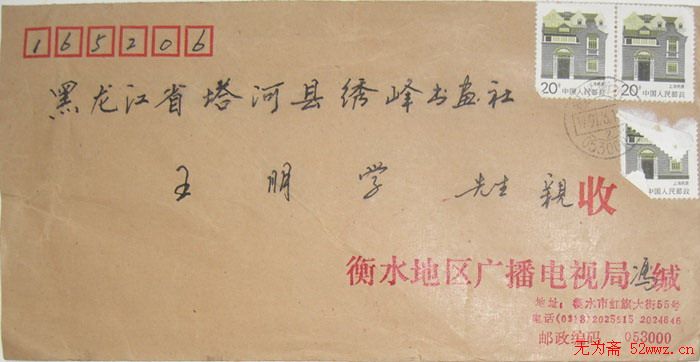 165206
20分 上海民居 中国人民邮政
20分 上海民居 中国人民邮政
上海民居 中国人民邮政
053000
黑龙江省塔河县绣峰书画社
王明学 先生 親收
衡水地区广播电视局 冯 缄
地址：衡水市红旗大街55号
电话(0318)2025515 2024646
邮政编码 053000
无为斋 52wwz.cn